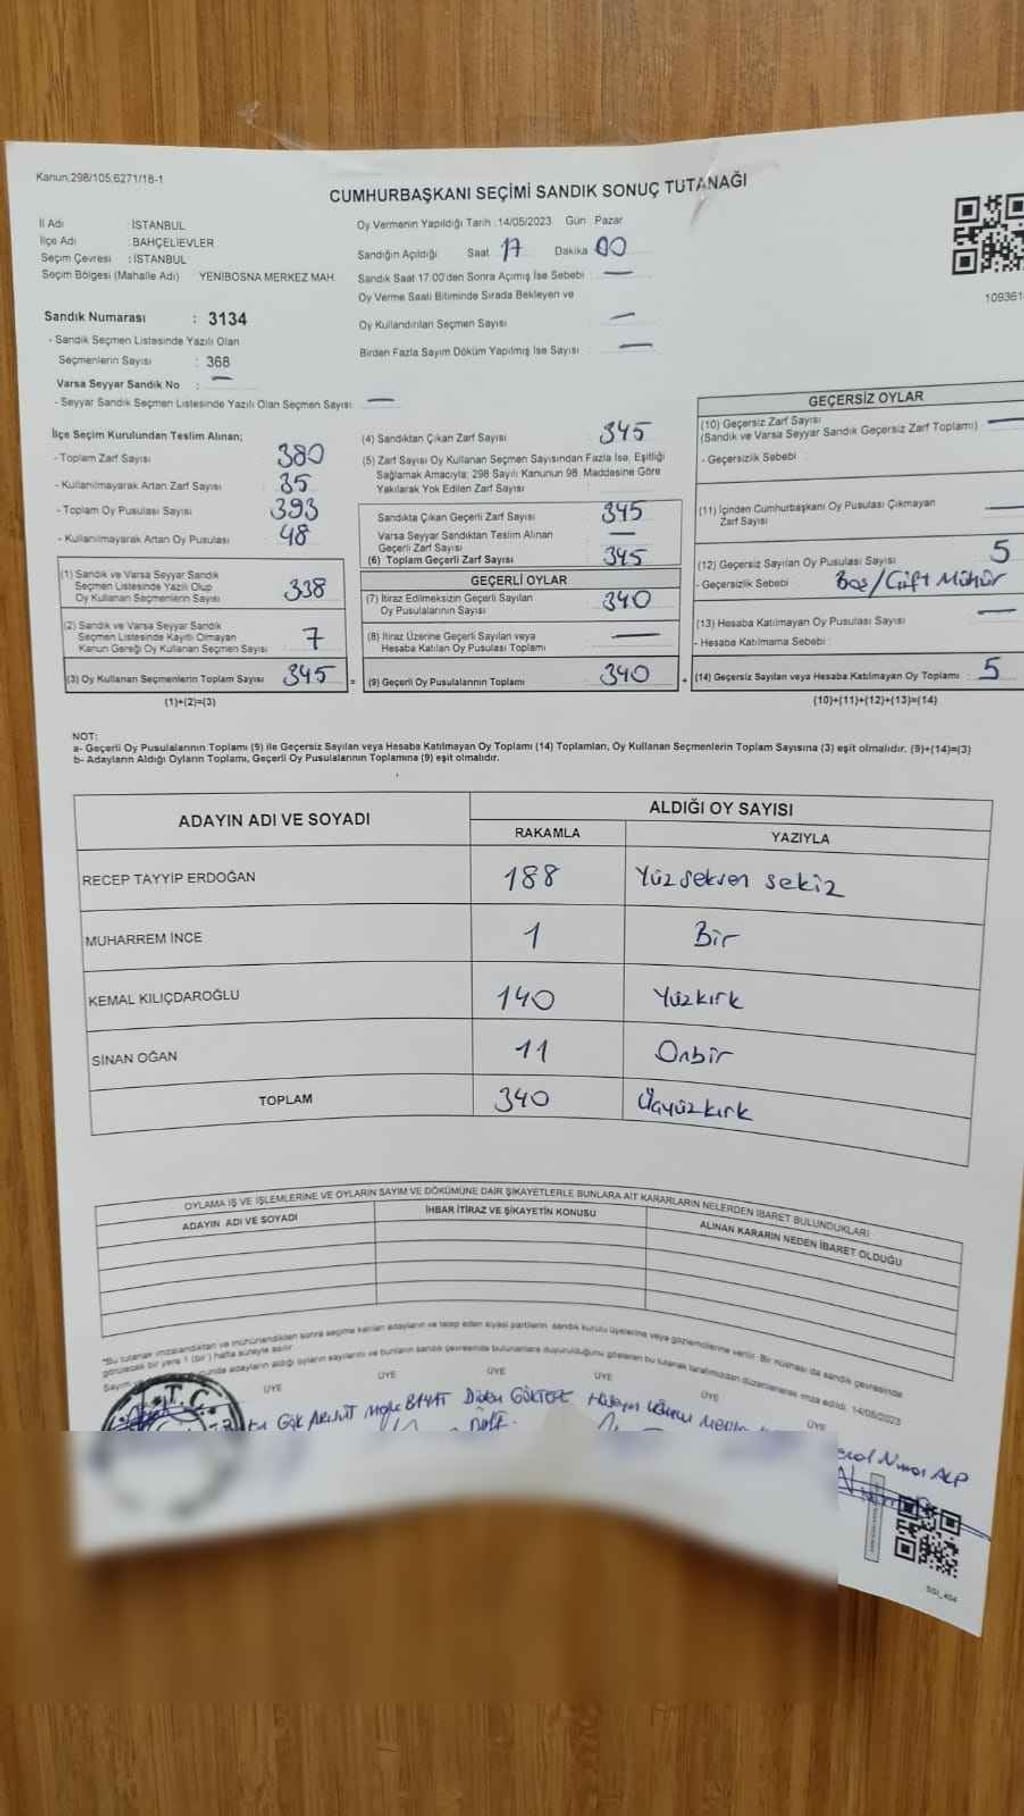 Kanun:298/105;6271/18-1
CUMHURBAŞKANI SEÇİMİ SANDIK SONUÇ TUTANAĞI
İl Adı : İSTANBUL
İlçe Adı : BAHÇELİEVLER
Seçim Çevresi : İSTANBUL
Seçim Bölgesi (Mahalle Adı) YENİBOSNA MERKEZ MAH.
Sandık Numarası : 3134
- Sandık Seçmen Listesinde Yazılı Olan
Seçmenlerin Sayısı : 368
Varsa Seyyar Sandık No : —
- Seyyar Sandık Seçmen Listesinde Yazılı Olan Seçmen Sayısı: —
Oy Vermenin Yapıldığı Tarih :14/05/2023 Gün Pazar
Sandığın Açıldığı Saat 17 Dakika 00
Sandık Saat 17:00'den Sonra Açımış İse Sebebi : —
Oy Verme Saati Bitiminde Sırada Bekleyen ve
Oy Kullandırılan Seçmen Sayısı : —
Birden Fazla Sayım Döküm Yapılmış İse Sayısı : —
109361
İlçe Seçim Kurulundan Teslim Alınan;
- Toplam Zarf Sayısı : 380
- Kullanılmayarak Artan Zarf Sayısı : 35
- Toplam Oy Pusulası Sayısı : 393
- Kullanılmayarak Artan Oy Pusulası : 48
(1) Sandık ve Varsa Seyyar Sandık
Seçmen Listesinde Yazılı Olup
Oy Kullanan Seçmenlerin Sayısı : 338
(2) Sandık ve Varsa Seyyar Sandık
Seçmen Listesinde Kayıtlı Olmayan
Kanun Gereği Oy Kullanan Seçmen Sayısı : 7
(3) Oy Kullanan Seçmenlerin Toplam Sayısı : 345 =
(1)+(2)=(3)
(4) Sandıktan Çıkan Zarf Sayısı : 345
(5) Zarf Sayısı Oy Kullanan Seçmen Sayısından Fazla İse, Eşitliği
Sağlamak Amacıyla; 298 Sayılı Kanunun 98. Maddesine Göre
Yakılarak Yok Edilen Zarf Sayısı
Sandıkta Çıkan Geçerli Zarf Sayısı : 345
Varsa Seyyar Sandıktan Teslim Alınan
Geçerli Zarf Sayısı : —
(6) Toplam Geçerli Zarf Sayısı : 345
GEÇERLİ OYLAR
(7) İtiraz Edilmeksizin Geçerli Sayılan
Oy Pusulalarının Sayısı : 340
(8) İtiraz Üzerine Geçerli Sayılan veya
Hesaba Katılan Oy Pusulası Toplamı : —
(9) Geçerli Oy Pusulalarının Toplamı : 340 +
GEÇERSİZ OYLAR
(10) Geçersiz Zarf Sayısı
(Sandık ve Varsa Seyyar Sandık Geçersiz Zarf Toplamı) : —
- Geçersizlik Sebebi :
(11) İçinden Cumhurbaşkanı Oy Pusulası Çıkmayan
Zarf Sayısı : —
(12) Geçersiz Sayılan Oy Pusulası Sayısı : 5
- Geçersizlik Sebebi : Boş/Çift Mühür
(13) Hesaba Katılmayan Oy Pusulası Sayısı : —
- Hesaba Katılmama Sebebi :
(14) Geçersiz Sayılan veya Hesaba Katılmayan Oy Toplamı : 5
(10)+(11)+(12)+(13)=(14)
NOT:
a- Geçerli Oy Pusulalarının Toplamı (9) ile Geçersiz Sayılan veya Hesaba Katılmayan Oy Toplamı (14) Toplamları, Oy Kullanan Seçmenlerin Toplam Sayısına (3) eşit olmalıdır. (9)+(14)=(3)
b- Adayların Aldığı Oyların Toplamı, Geçerli Oy Pusulalarının Toplamına (9) eşit olmalıdır.
ADAYIN ADI VE SOYADI
ALDIĞI OY SAYISI
RAKAMLA YAZIYLA
RECEP TAYYİP ERDOĞAN 188 Yüzseksen sekiz
MUHARREM İNCE 1 Bir
KEMAL KILIÇDAROĞLU 140 Yüzkırk
SİNAN OĞAN 11 Onbir
TOPLAM 340 Üçyüzkırk
OYLAMA İŞ VE İŞLEMLERİNE VE OYLARIN SAYIM VE DÖKÜMÜNE DAİR ŞİKAYETLERLE BUNLARA AİT KARARLARIN NELERDEN İBARET BULUNDUKLARI
ADAYIN ADI VE SOYADI İHBAR İTİRAZ VE ŞİKAYETİN KONUSU ALINAN KARARIN NEDEN İBARET OLDUĞU
"Bu tutanak imzalandıktan ve mühürlendikten sonra seçime katılan adayların ve talep eden siyasi partilerin sandık kurulu üyelerine veya gözlemcilerine verilir. Bir nüshası da sandık çevresinde
görülecek bir yere 1 (bir) hafta süreyle asılır
adayların aldığı oyların sayılarını ve bunların sandık çevresinde bulunanlara duyurulduğunu gösteren bu tutanak tarafımızdan düzenlenerek imza edildi. 14/05/2023
ÜYE ÜYE ÜYE ÜYE ÜYE ÜYE
T.C.
Gök BAYAT GÖKTEPE
Nuran ALP